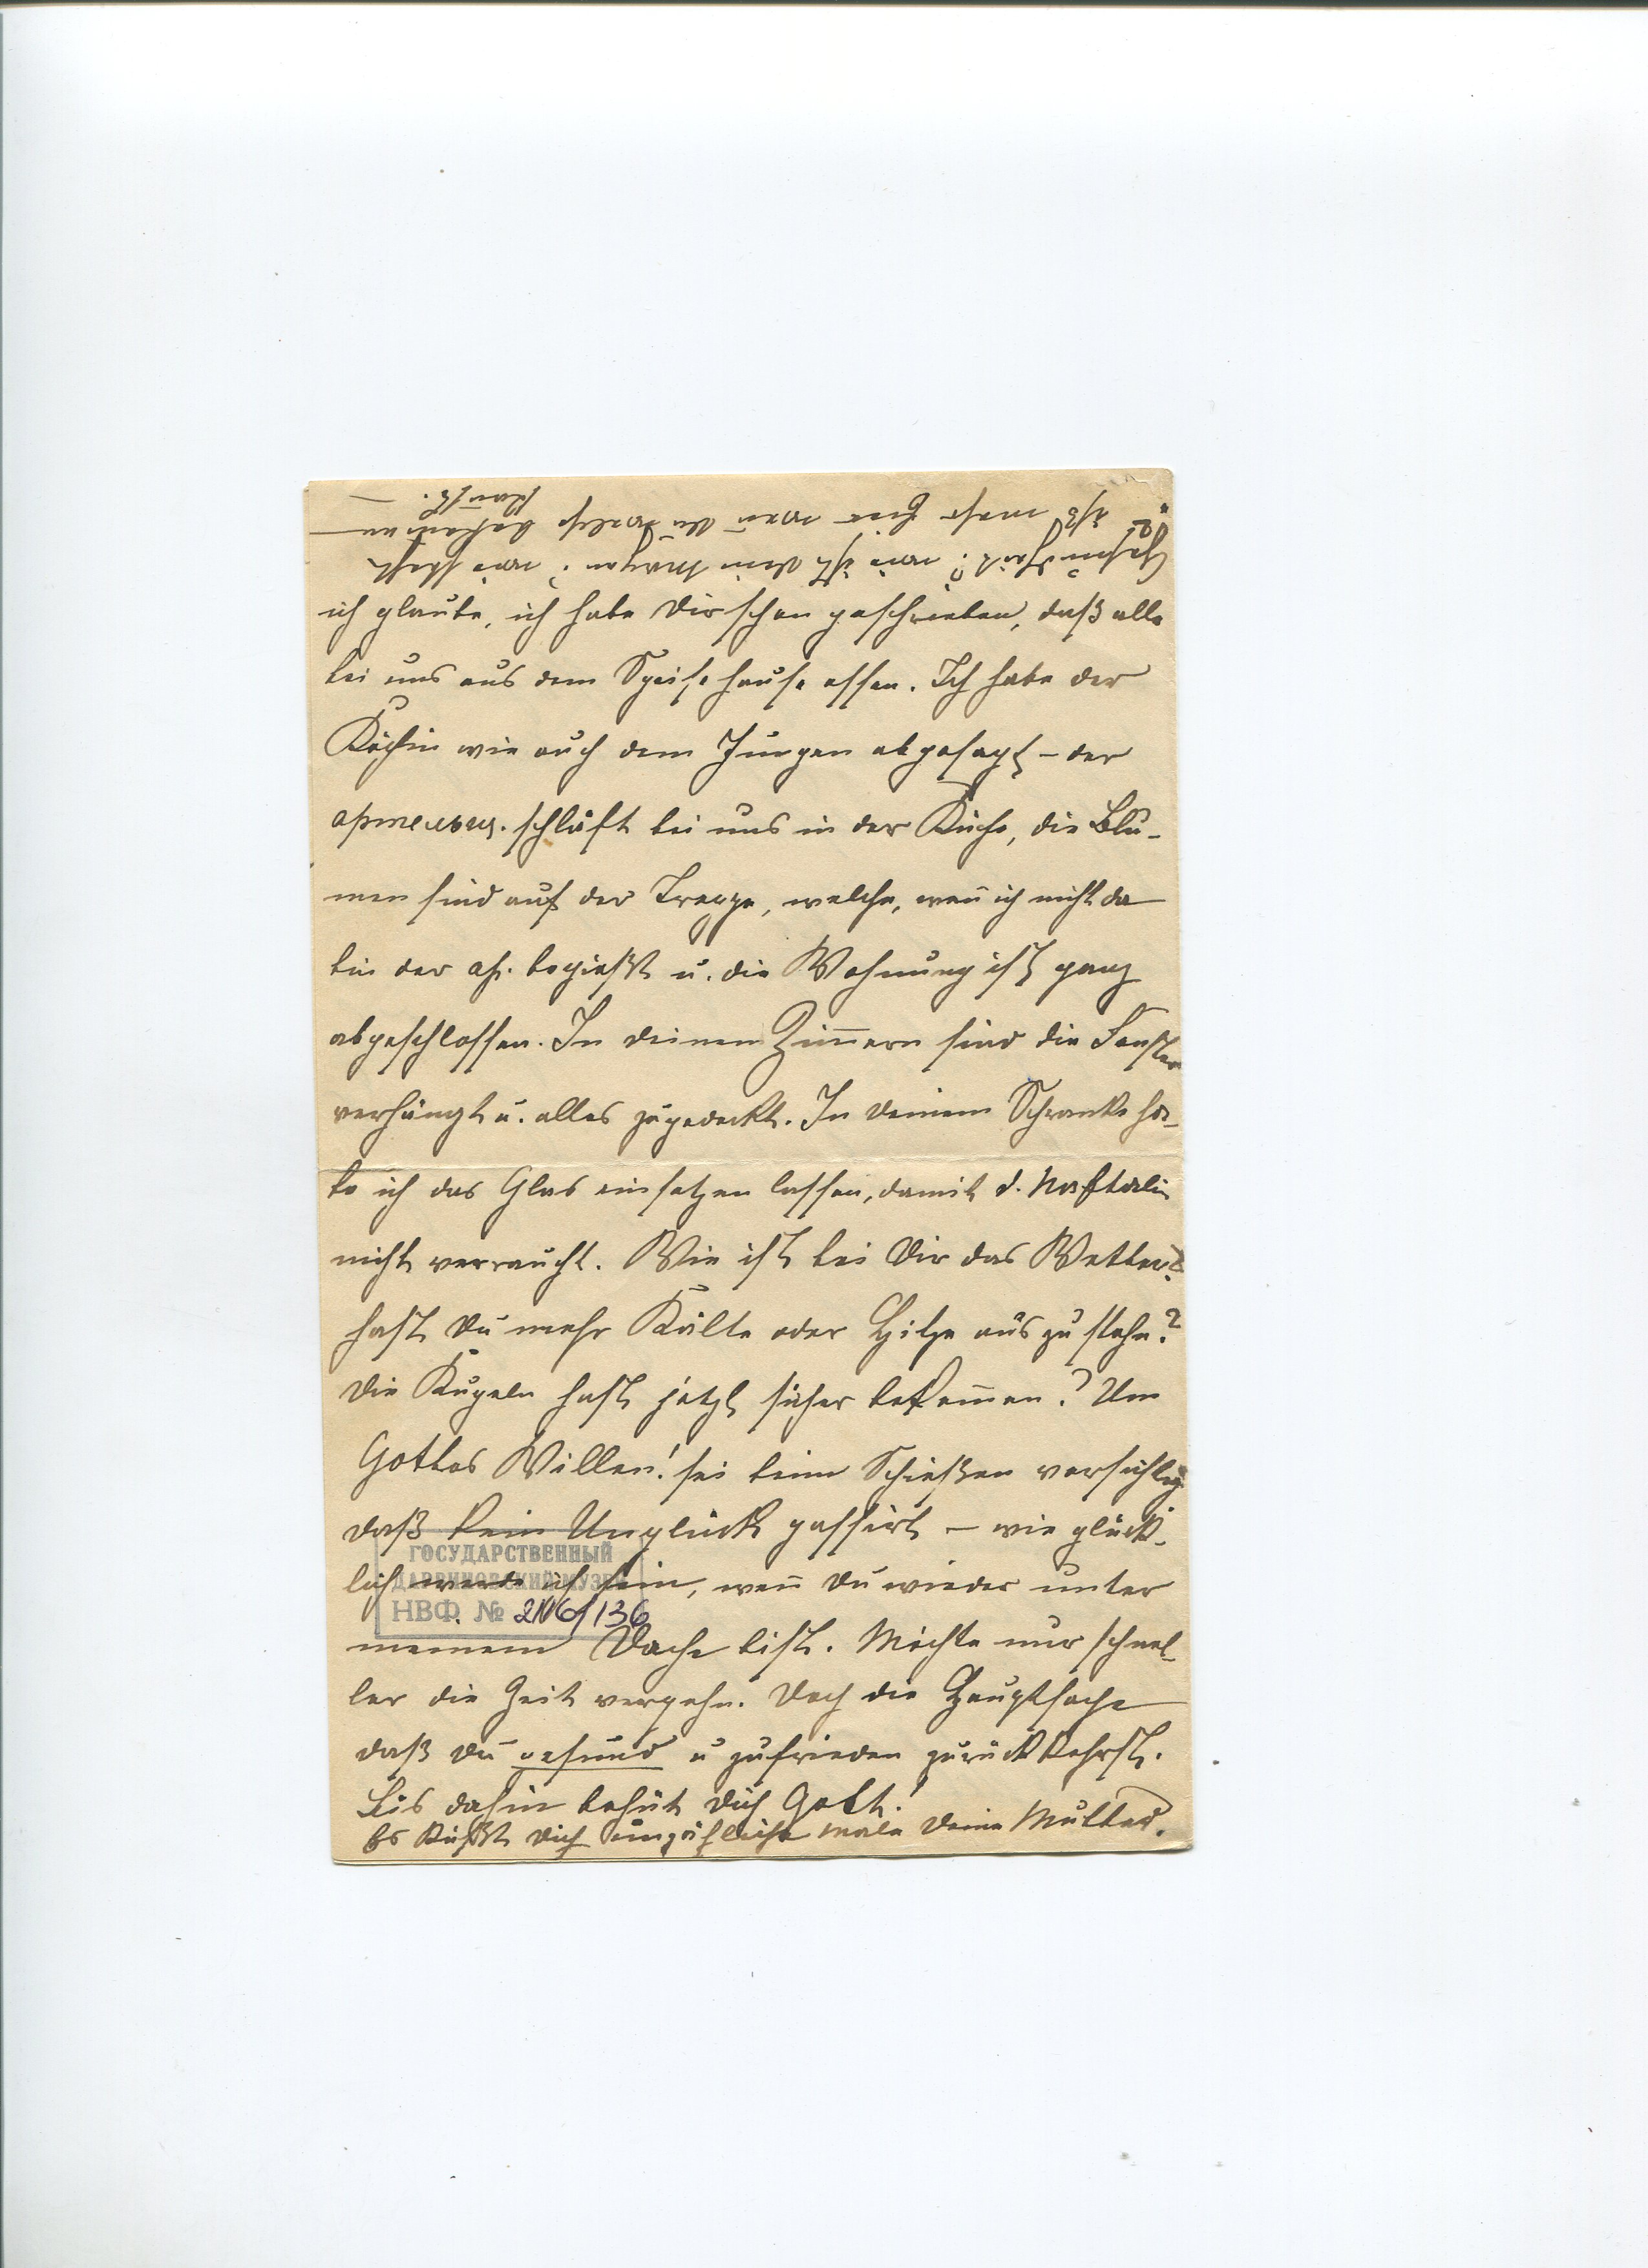 ich glaube, ich habe Dir schon geschrieben, daß alle
bei uns aus dem Speisehause essen. Ich habe der
Köchin wie auch dem Jungen abgesagt – der
артельщ. schläft bei uns in der Küche, die Blu-
men sind auf der Treppe, welche, weñ ich nicht da
bin der ар. begießt u. die Wohnung ist ganz
abgeschlossen. In deinen Zim̄ern sind die Fenster
verhängt u. alles zugedeckt. In Deinem Schranke ha-
be ich das Glas einsetzen lassen, damit d. Naftalin
nicht verraucht. Wie ist bei Dir das Wetter?
hast Du mehr Kälte oder Hitze auszustehn?
Die Kugeln hast jetzt sicher bekom̄en? Um
Gottes Willen! sei beim Schießen vorsichtig
daß kein Unglück passirt – wie glück-
lich werde ich sein, weñ Du wieder unter
meinem Dache bist. Möchte nur schnel-
ler die Zeit vergehn. Doch die Hauptsache
daß Du gesund u zufrieden zurückkehrst.
Bis dahin behüt Dich Gott!
Es küßt Dich unzähliche male Deine Mutter.
Gesundheit? wie ist dein Magen? wie
iß mehr Eier weñ Du welche bekom̄en
kannst.
ГОСУДАРСТВЕННЫЙ
ДАРВИНОВСКИЙ МУЗЕЙ
НВФ. №